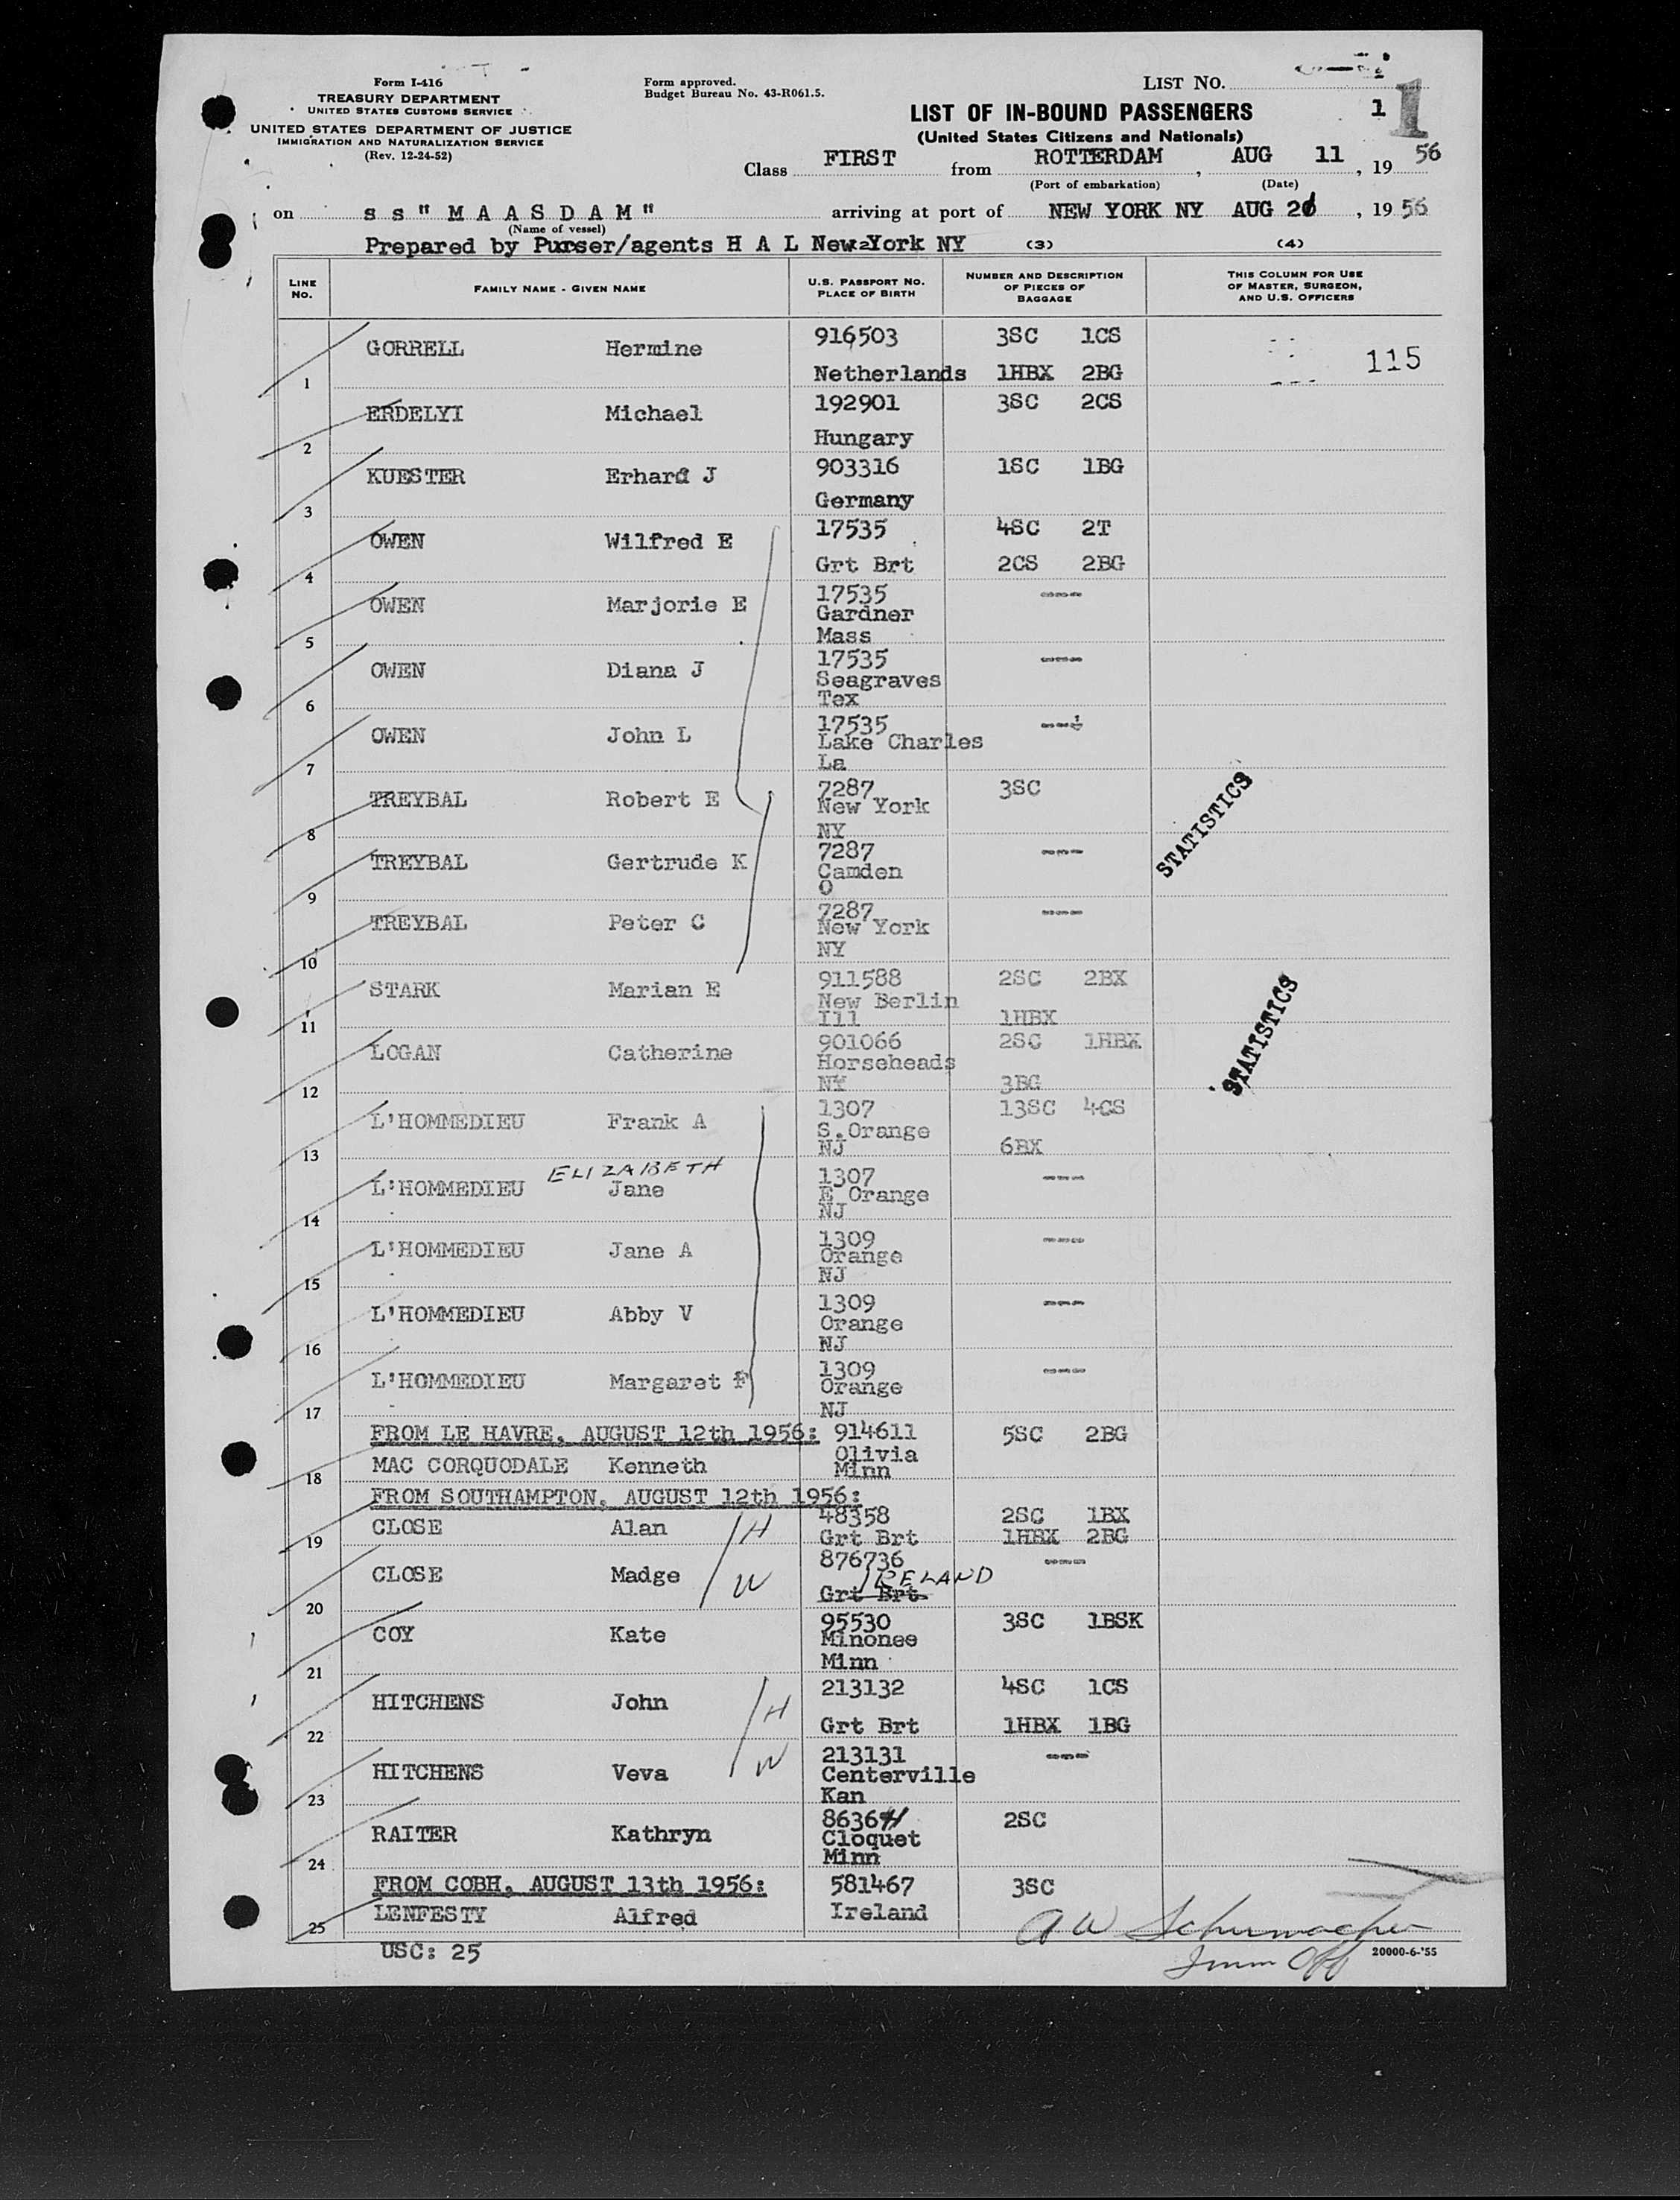 Form I-416
TREASURY DEPARTMENT
UNITED STATES CUSTOMS SERVICE
UNITED STATES DEPARTMENT OF JUSTICE
IMMIGRATION AND NATURALIZATION SERVICE
(Rev. 12-24-52)
Form approved.
Budget Bureau No. 43-R061.5.
LIST NO.
1
1
LIST OF IN-BOUND PASSENGERS
(United States Citizens and Nationals)
Class FIRST from ROTTERDAM, AUG 11, 1956
(Port of embarkation) (Date)
on s s " M A A S D A M " arriving at port of NEW YORK NY AUG 20, 1956
(Name of vessel)
Prepared by Purser/agents H A L New York NY (3) (4)
LINE NO. FAMILY NAME - GIVEN NAME U.S. PASSPORT NO. PLACE OF BIRTH NUMBER AND DESCRIPTION OF PIECES OF BAGGAGE THIS COLUMN FOR USE OF MASTER, SURGEON, AND U.S. OFFICERS
916503 3SC 1CS
GORRELL Hermine 115
1 Netherlands 1HBX 2BG
192901 3SC 2CS
ERDELYI Michael
2 Hungary
903316 1SC 1BG
KUESTER Erhard J
3 Germany
17535 4SC 2T
OWEN Wilfred E
4 Grt Brt 2CS 2BG
17535 ----
OWEN Marjorie E Gardner
5 Mass
17535 ----
OWEN Diana J Seagraves
6 Tex
17535 ----
OWEN John L Lake Charles
7 La
7287 3SC
TREYBAL Robert E New York
8 NY
7287 ----
TREYBAL Gertrude K Camden
9 O
7287 ----
TREYBAL Peter C New York
10 NY
STATISTICS
911588 2SC 2BX
STARK Marian E New Berlin
11 Ill 1HBX
901066 2SC 1HBX
LOGAN Catherine Horseheads
12 NY 3BG
STATISTICS
1307 13SC 4CS
L'HOMMEDIEU Frank A S.Orange
13 NJ 6BX
ELIZABETH
1307 ----
L'HOMMEDIEU Jane E Orange
14 NJ
1309 ----
L'HOMMEDIEU Jane A Orange
15 NJ
1309 ----
L'HOMMEDIEU Abby V Orange
16 NJ
1309 ----
L'HOMMEDIEU Margaret F Orange
17 NJ
FROM LE HAVRE, AUGUST 12th 1956: 914611 5SC 2BG
Olivia
18 MAC CORQUODALE Kenneth Minn
FROM SOUTHAMPTON, AUGUST 12th 1956:
48358 2SC 1BX
CLOSE Alan H
19 Grt Brt 1HBX 2BG
876736 ----
CLOSE Madge W IRELAND
20 Grt Brt
95530 3SC 1BSK
COY Kate Minonee
21 Minn
213132 4SC 1CS
HITCHENS John H
22 Grt Brt 1HBX 1BG
213131 ----
HITCHENS Veva W Centerville
23 Kan
2SC
RAITER Kathryn Cloquet
24 Minn
FROM COBH, AUGUST 13th 1956: 581467 3SC
25 LENFESTY Alfred Ireland
USC: 25
A W Schumacher
Imm Off
20000-6-'55